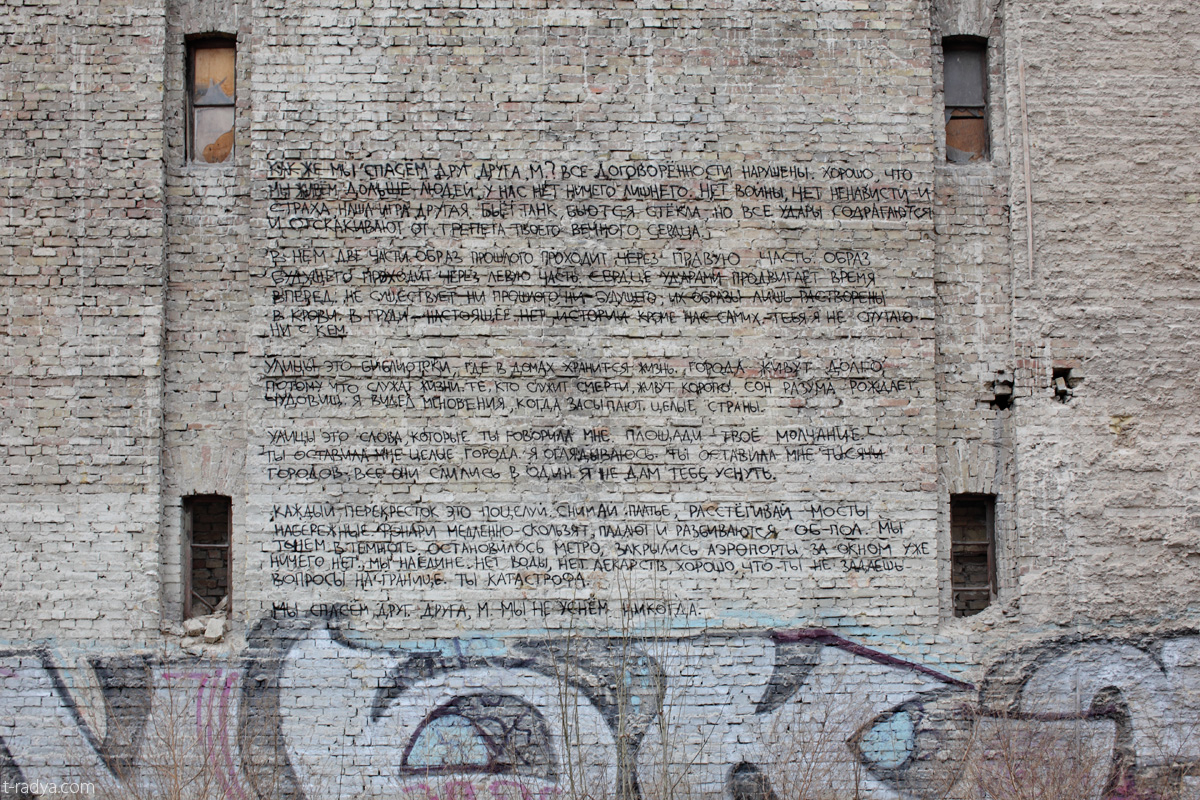 КАК ЖЕ МЫ СПАСЕМ ДРУГ ДРУГА, М.? ВСЕ ДОГОВОРЁННОСТИ НАРУШЕНЫ. ХОРОШО, ЧТО
МЫ ЖИВЕМ ДОЛЬШЕ ЛЮДЕЙ, У НАС НЕТ НИЧЕГО ЛИШНЕГО. НЕТ ВОЙНЫ, НЕТ НЕНАВИСТИ И
СТРАХА, НАША ИГРА ДРУГАЯ. БЬЁТ ТАНК, БЬЮТСЯ СТЁКЛА, НО ВСЕ УДАРЫ СОДРАГАЮТСЯ
И ОТСКАКИВАЮТ ОТ ТРЕПЕТА ТВОЕГО ВЕЧНОГО СЕРДЦА.
В НЁМ ДВЕ ЧАСТИ. ОБРАЗ ПРОШЛОГО ПРОХОДИТ ЧЕРЕЗ ПРАВУЮ ЧАСТЬ. ОБРАЗ
БУДУЩЕГО ПРОХОДИТ ЧЕРЕЗ ЛЕВУЮ ЧАСТЬ. СЕРДЦЕ УДАРАМИ ПРОДВИГАЕТ ВРЕМЯ
ВПЕРЕД. НЕ СУЩЕСТВУЕТ НИ ПРОШЛОГО НИ БУДУЩЕГО, ИХ ОБРАЗЫ ЛИШЬ РАСТВОРЕНЫ
В КРОВИ. В ГРУДИ НАСТОЯЩЕЕ. НЕТ ИСТОРИИ КРОМЕ НАС САМИХ. ТЕБЯ Я НЕ СПУТАЮ
НИ С КЕМ.
УЛИЦЫ ЭТО БИБЛИОТЕКИ, ГДЕ В ДОМАХ ХРАНИТСЯ ЖИЗНЬ. ГОРОДА ЖИВУТ ДОЛГО,
ПОТОМУ ЧТО СЛУЖАТ ЖИЗНИ. ТЕ, КТО СЛУЖИТ СМЕРТИ, ЖИВУТ КОРОТКО. СОН РАЗУМА РОЖДАЕТ
ЧУДОВИЩ. Я ВИДЕЛ МГНОВЕНИЯ, КОГДА ЗАСЫПАЮТ ЦЕЛЫЕ СТРАНЫ.
УЛИЦЫ ЭТО СЛОВА, КОТОРЫЕ ТЫ ГОВОРИЛА МНЕ. ПЛОЩАДИ ТВОЁ МОЛЧАНИЕ.
ТЫ ОСТАВИЛА МНЕ ЦЕЛЫЕ ГОРОДА. Я ОГЛЯДЫВАЮСЬ. ТЫ ОСТАВИЛА МНЕ ТЫСЯЧИ
ГОРОДОВ. ВСЕ ОНИ СЛИЛИСЬ В ОДИН. Я НЕ ДАМ ТЕБЕ УСНУТЬ.
КАЖДЫЙ ПЕРЕКРЕСТОК ЭТО ПОЦЕЛУЙ. СНИМАЙ ПЛАТЬЕ, РАССТЁГИВАЙ МОСТЫ
НАБЕРЕЖНЫЕ. ФОНАРИ МЕДЛЕННО СКОЛЬЗЯТ, ПАДАЮТ И РАЗБИВАЮТСЯ ОБ ПОЛ. МЫ
ТОНЕМ В ТЕМНОТЕ. ОСТАНОВИЛОСЬ МЕТРО, ЗАКРЫЛИСЬ АЭРОПОРТЫ. ЗА ОКНОМ УЖЕ
НИЧЕГО НЕТ. МЫ НАЕДИНЕ. НЕТ ВОДЫ, НЕТ ЛЕКАРСТВ, ХОРОШО, ЧТО ТЫ НЕ ЗАДАЁШЬ
ВОПРОСЫ НА ГРАНИЦЕ. ТЫ КАТАСТРОФА.
МЫ СПАСЕМ ДРУГ ДРУГА, М. МЫ НЕ УСНЁМ НИКОГДА.
t-radya.com